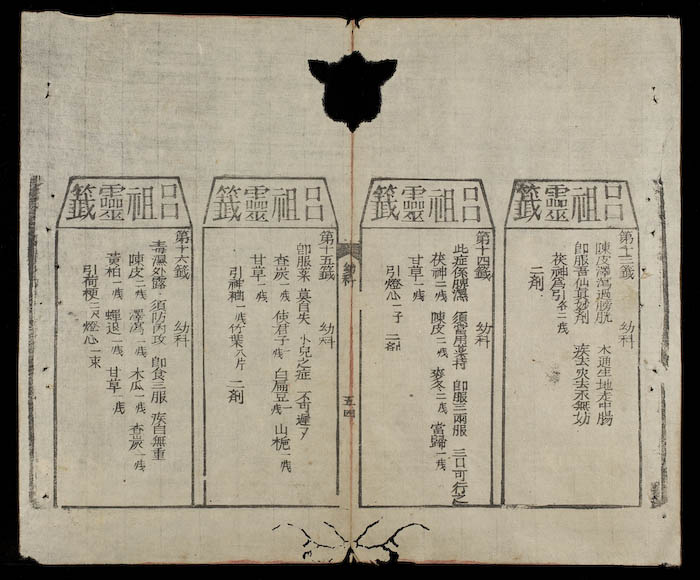 呂祖靈籤
第十三籤 幼科
陳皮澤瀉過膀胱 木通生地走中腸
即服吾仙真妙劑 疾去災去永無妨
茯神為引各二戔
二剤
呂祖靈籤
第十四籤 幼科
此症係脾濕 須當用藥持 即服三兩服 三日可行之
茯神二戔 陳皮二戔 麥冬二戔 當歸一戔
甘草一戔
引燈心一子 二剤
幼科
五四
呂祖靈籤
第十五籤 幼科
即服藥 莫自失 小兒之症 不可遲了
查炭一戔 使君子一戔 白扁豆一 山梔一戔
甘草一戔
引神粬一戔 竹葉八片 二剤
呂祖靈籤
第十六籤 幼科
毒濕外露 須防內攻 即食三服 疾自無重
陳皮二戔 澤瀉一戔 木瓜一戔 查炭一戔
黃柏一戔 蟬退一戔 甘草一戔
引荷梗三尺 燈心一束